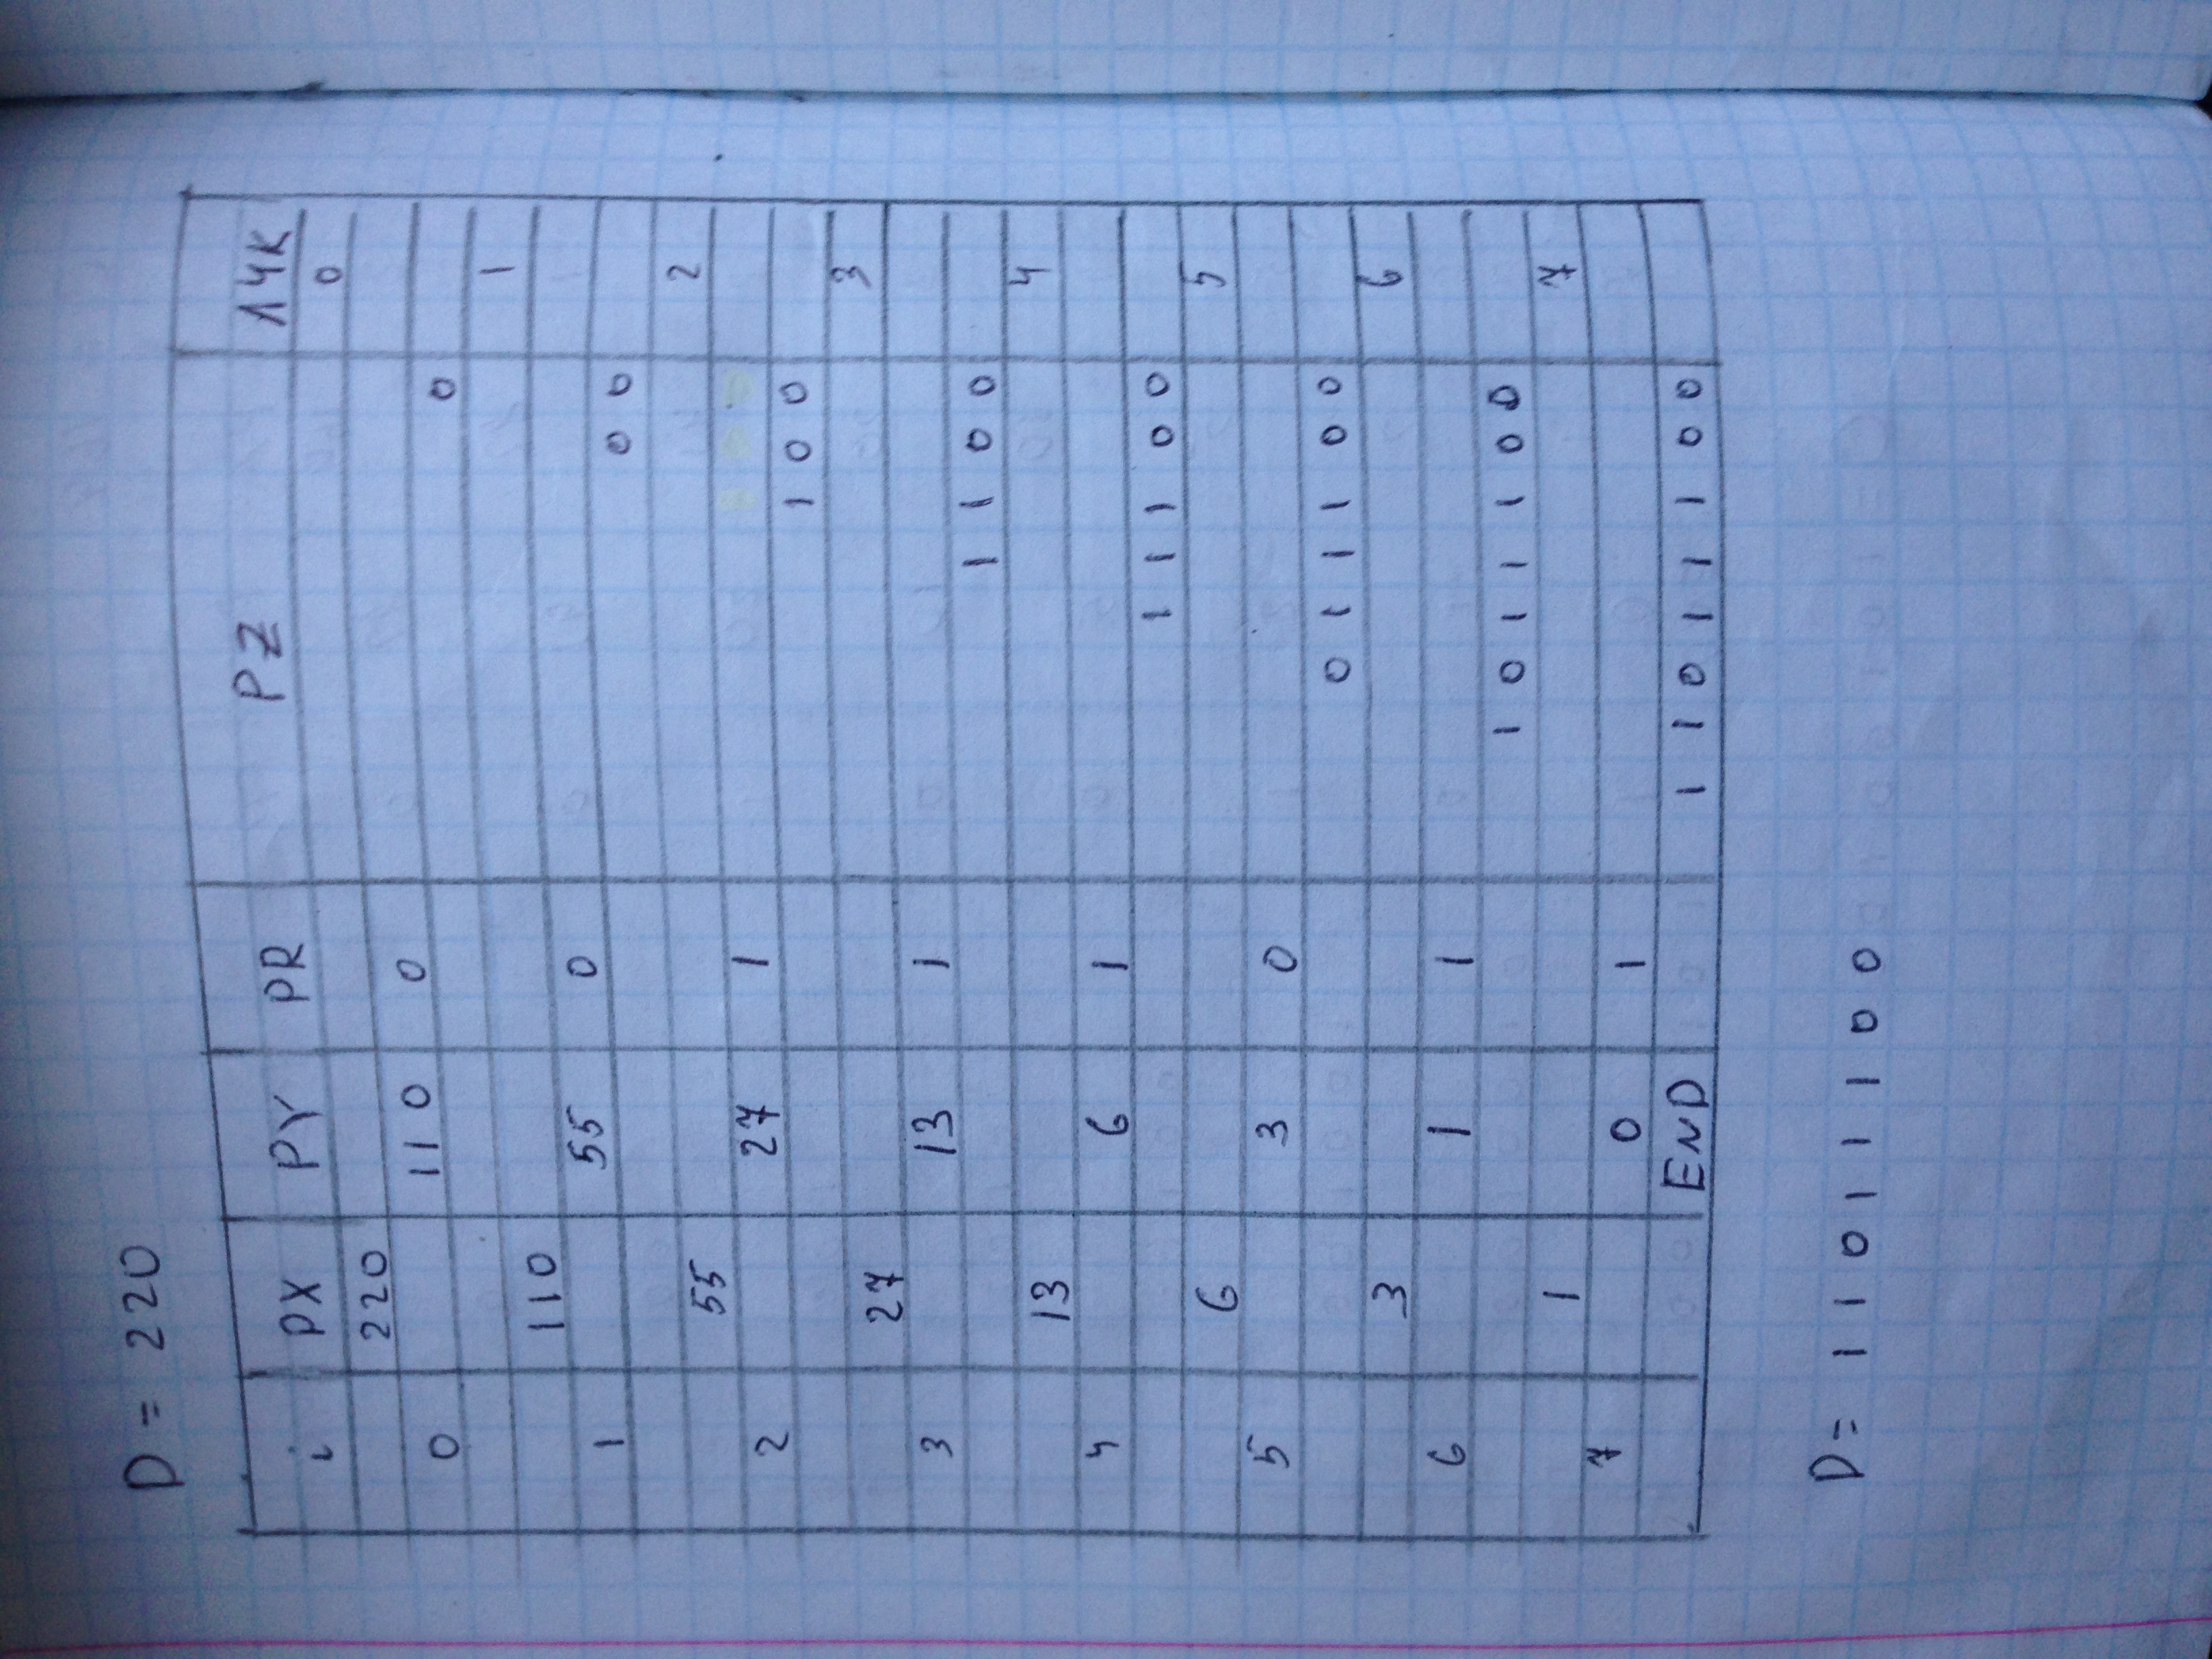 D = 220
i PX PY PR PZ ЛЧК
0
220
0 110 0
0
1
110
1 55 0
0 0
2
55
2 27 1
1 0 0
3
27
3 13 1
1 1 0 0
4
13
4 6 1
1 1 1 0 0
5
6
5 3 0
0 1 1 1 0 0
6
3
6 1 1
1 0 1 1 1 0 0
7
1
7 0 1
END 1 1 0 1 1 1 0 0
D= 1 1 0 1 1 1 0 0